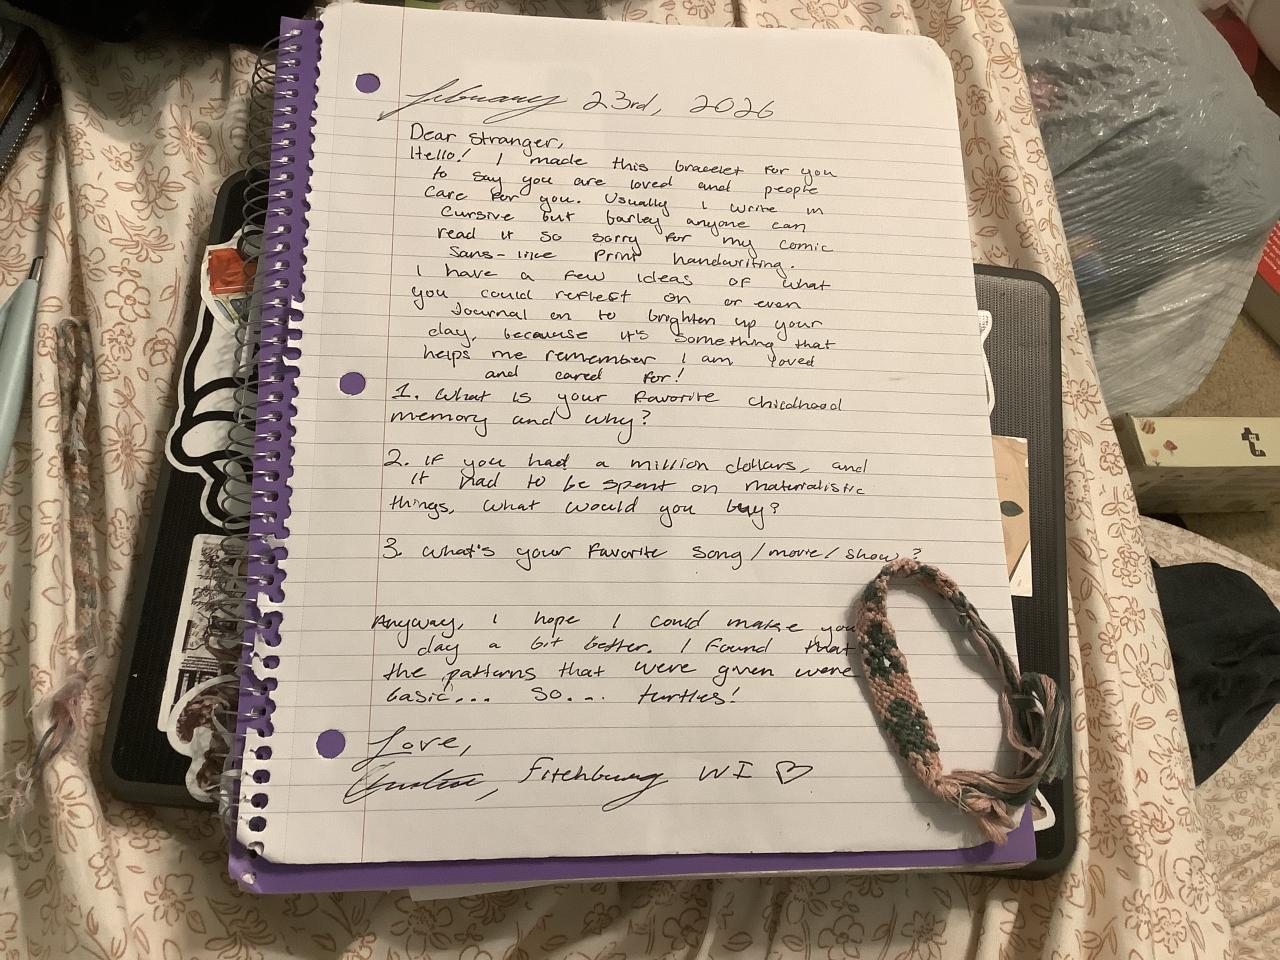 February 23rd, 2026
Dear Stranger,
Hello! I made this bracelet for you
to say you are loved and people
care for you. Usually I write in
cursive but barley anyone can
read it so sorry for my comic
sans-like print handwriting.
I have a few ideas of what
you could reflest on or even
Journal on to brighten up your
day, because it's something that
helps me remember I am loved
and cared for!
1. What is your favorite chicdhood
memory and why?
2. If you had a million dollars, and
it had to be spent on materialistic
things, what would you buy?
3. What's your favorite song/movie/show?
Anyway, I hope I could make you
day a bit better. I found that
the patterns that were given were
basic... so... turtles!
Love,
Fitchburg WI ♡